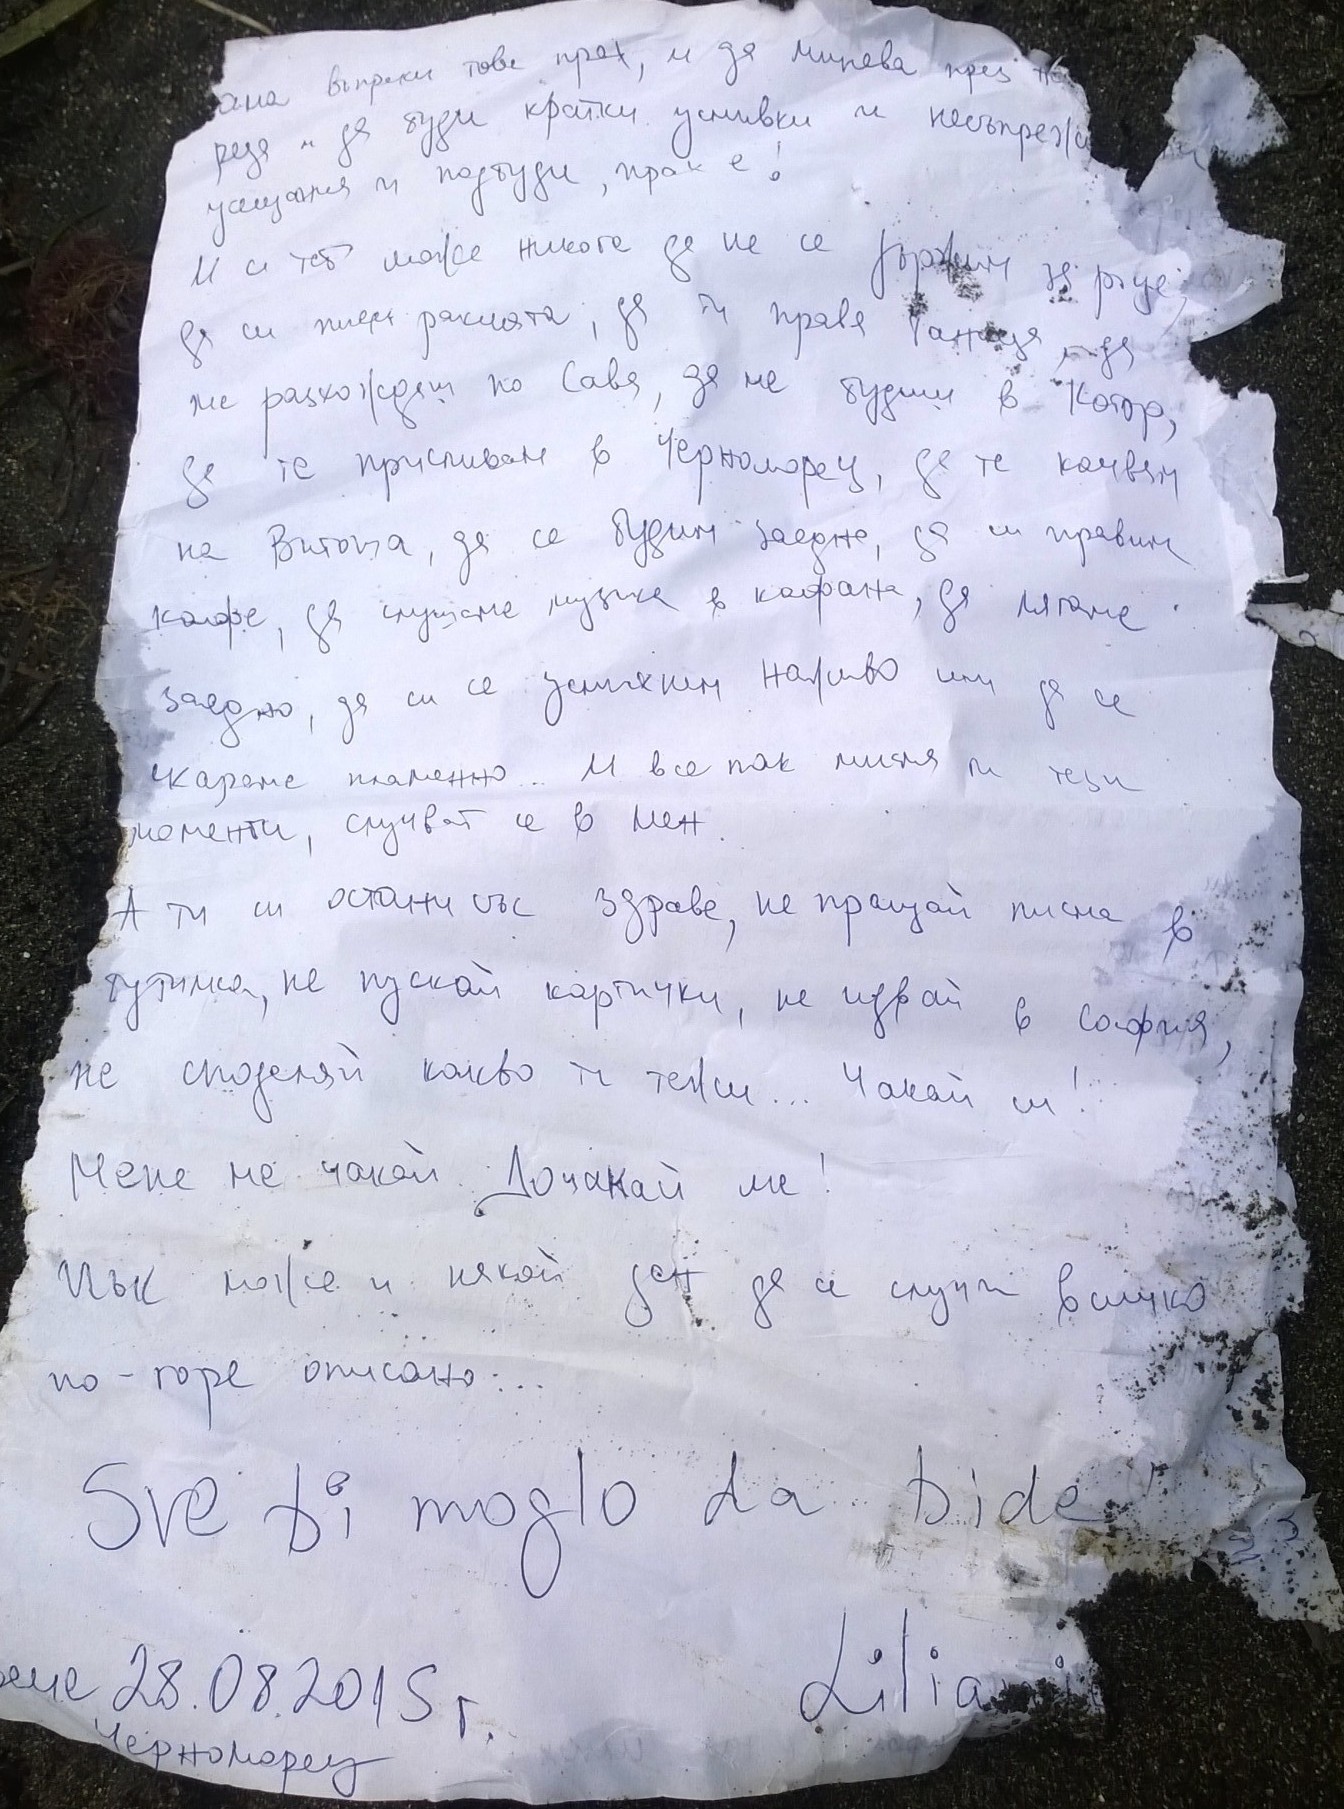 въпреки това прах, и да минава през
реця и да буди кратки усмивки и
усещания и подбуди, прах е!
И си тъй може никога да не се държим за ръце,
да си пием ракията, да ти правя баница, да
ме разхождаш по Сава, да ме будиш в Котор,
да те приспивам в Черноморец, да те качвам
на Витоша, да се будим заедно, да си правим
кафе, да слушаме музика в кафана, да лягаме
заедно, да си се усмихнем наживо или да се
караме пламенно... И все пак мисля ги тези
моменти, случват се в мен.
А ти си остани със здраве, не пращай писма в
бутилка, не пускай картички, не идвай в София,
не споделяй какво ти тежи... Чакай си!
Мене не чакай. Дочакай ме!
Пък може и някой ден да се случи всичко
по-горе описано...
Sve bi moglo da bide
28.08.2015 г.
Черноморец